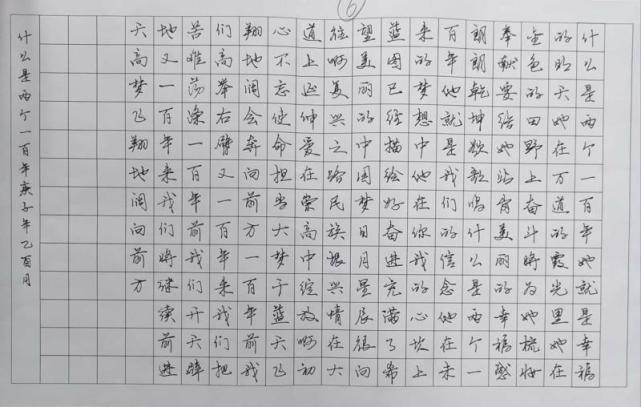 6
什么是两个一百年她就是幸福
的阳天她在万道的霞光里她在
金色的田野上奋斗将为她梳妆
奉献要结她站骨美丽的幸福感
朗朗乾坤欲歌唱什么是两个一
百年他就是我们的信念他在未
来的梦想中他在你我的心坎上
蓝图已经描绘好奋进充满了希
望美丽的中国梦日月星辰很向
往啊复兴之路民族振兴情在大
道上延伸爱在荣高中绽放啊初
心不忘使命担当大梦于蓝天飞
翔地阔会奔向前方一百年前我
们高举右臂又一百年来我们把
苦难荡涤一百年前我们开天辟
地又一百年来我们将继续前进
天高梦飞翔地阔向前方
什么是两个一百年庚子年乙酉月